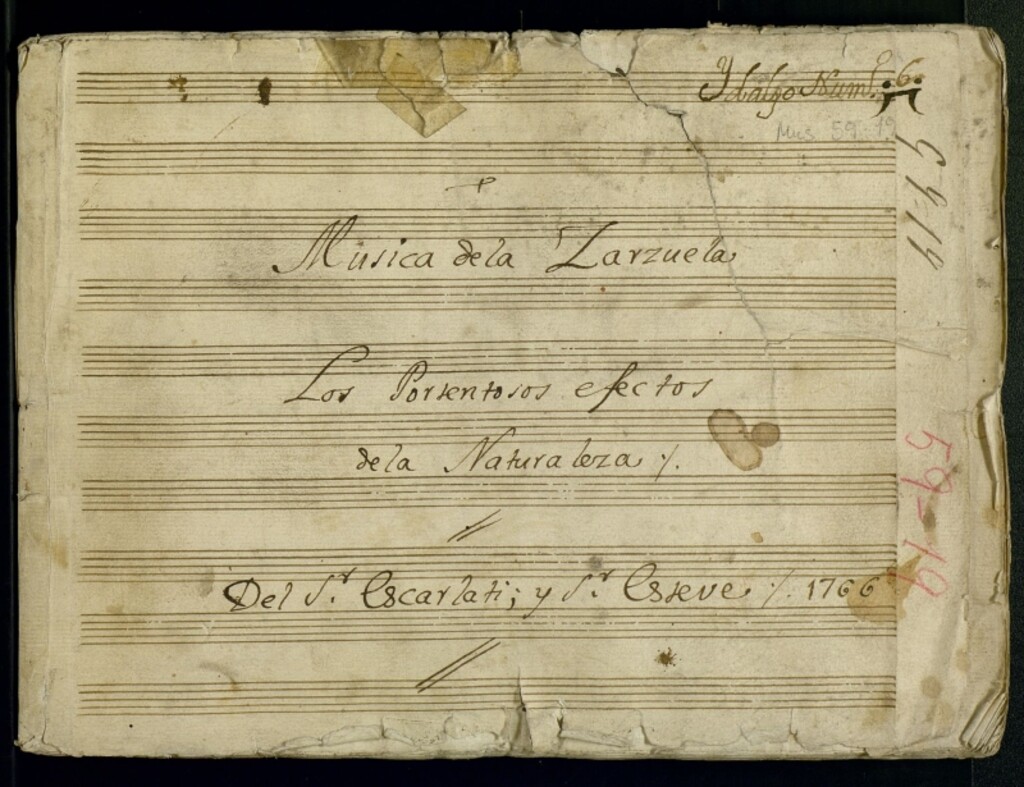 Ydalgo Num.º 6.
Mus 59-19
59-19
Musica dela Zarzuela
Los Portentosos efectos
dela Naturaleza
59-19
Del S.r Escarlati; y S.r Esteve 1766